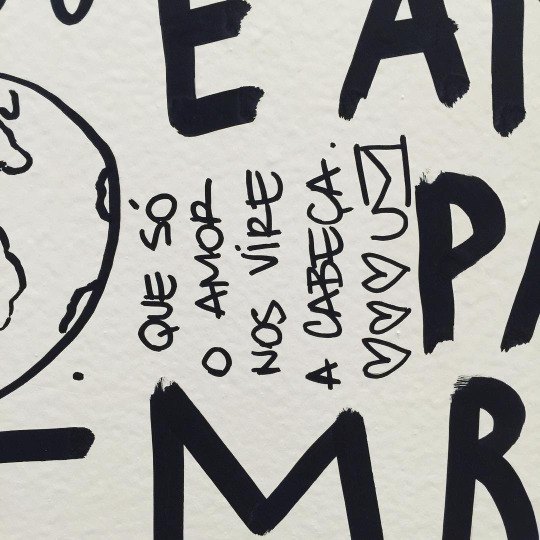 E A
QUE SÓ
O AMOR
NOS VIRE
A CABEÇA.
P
M R